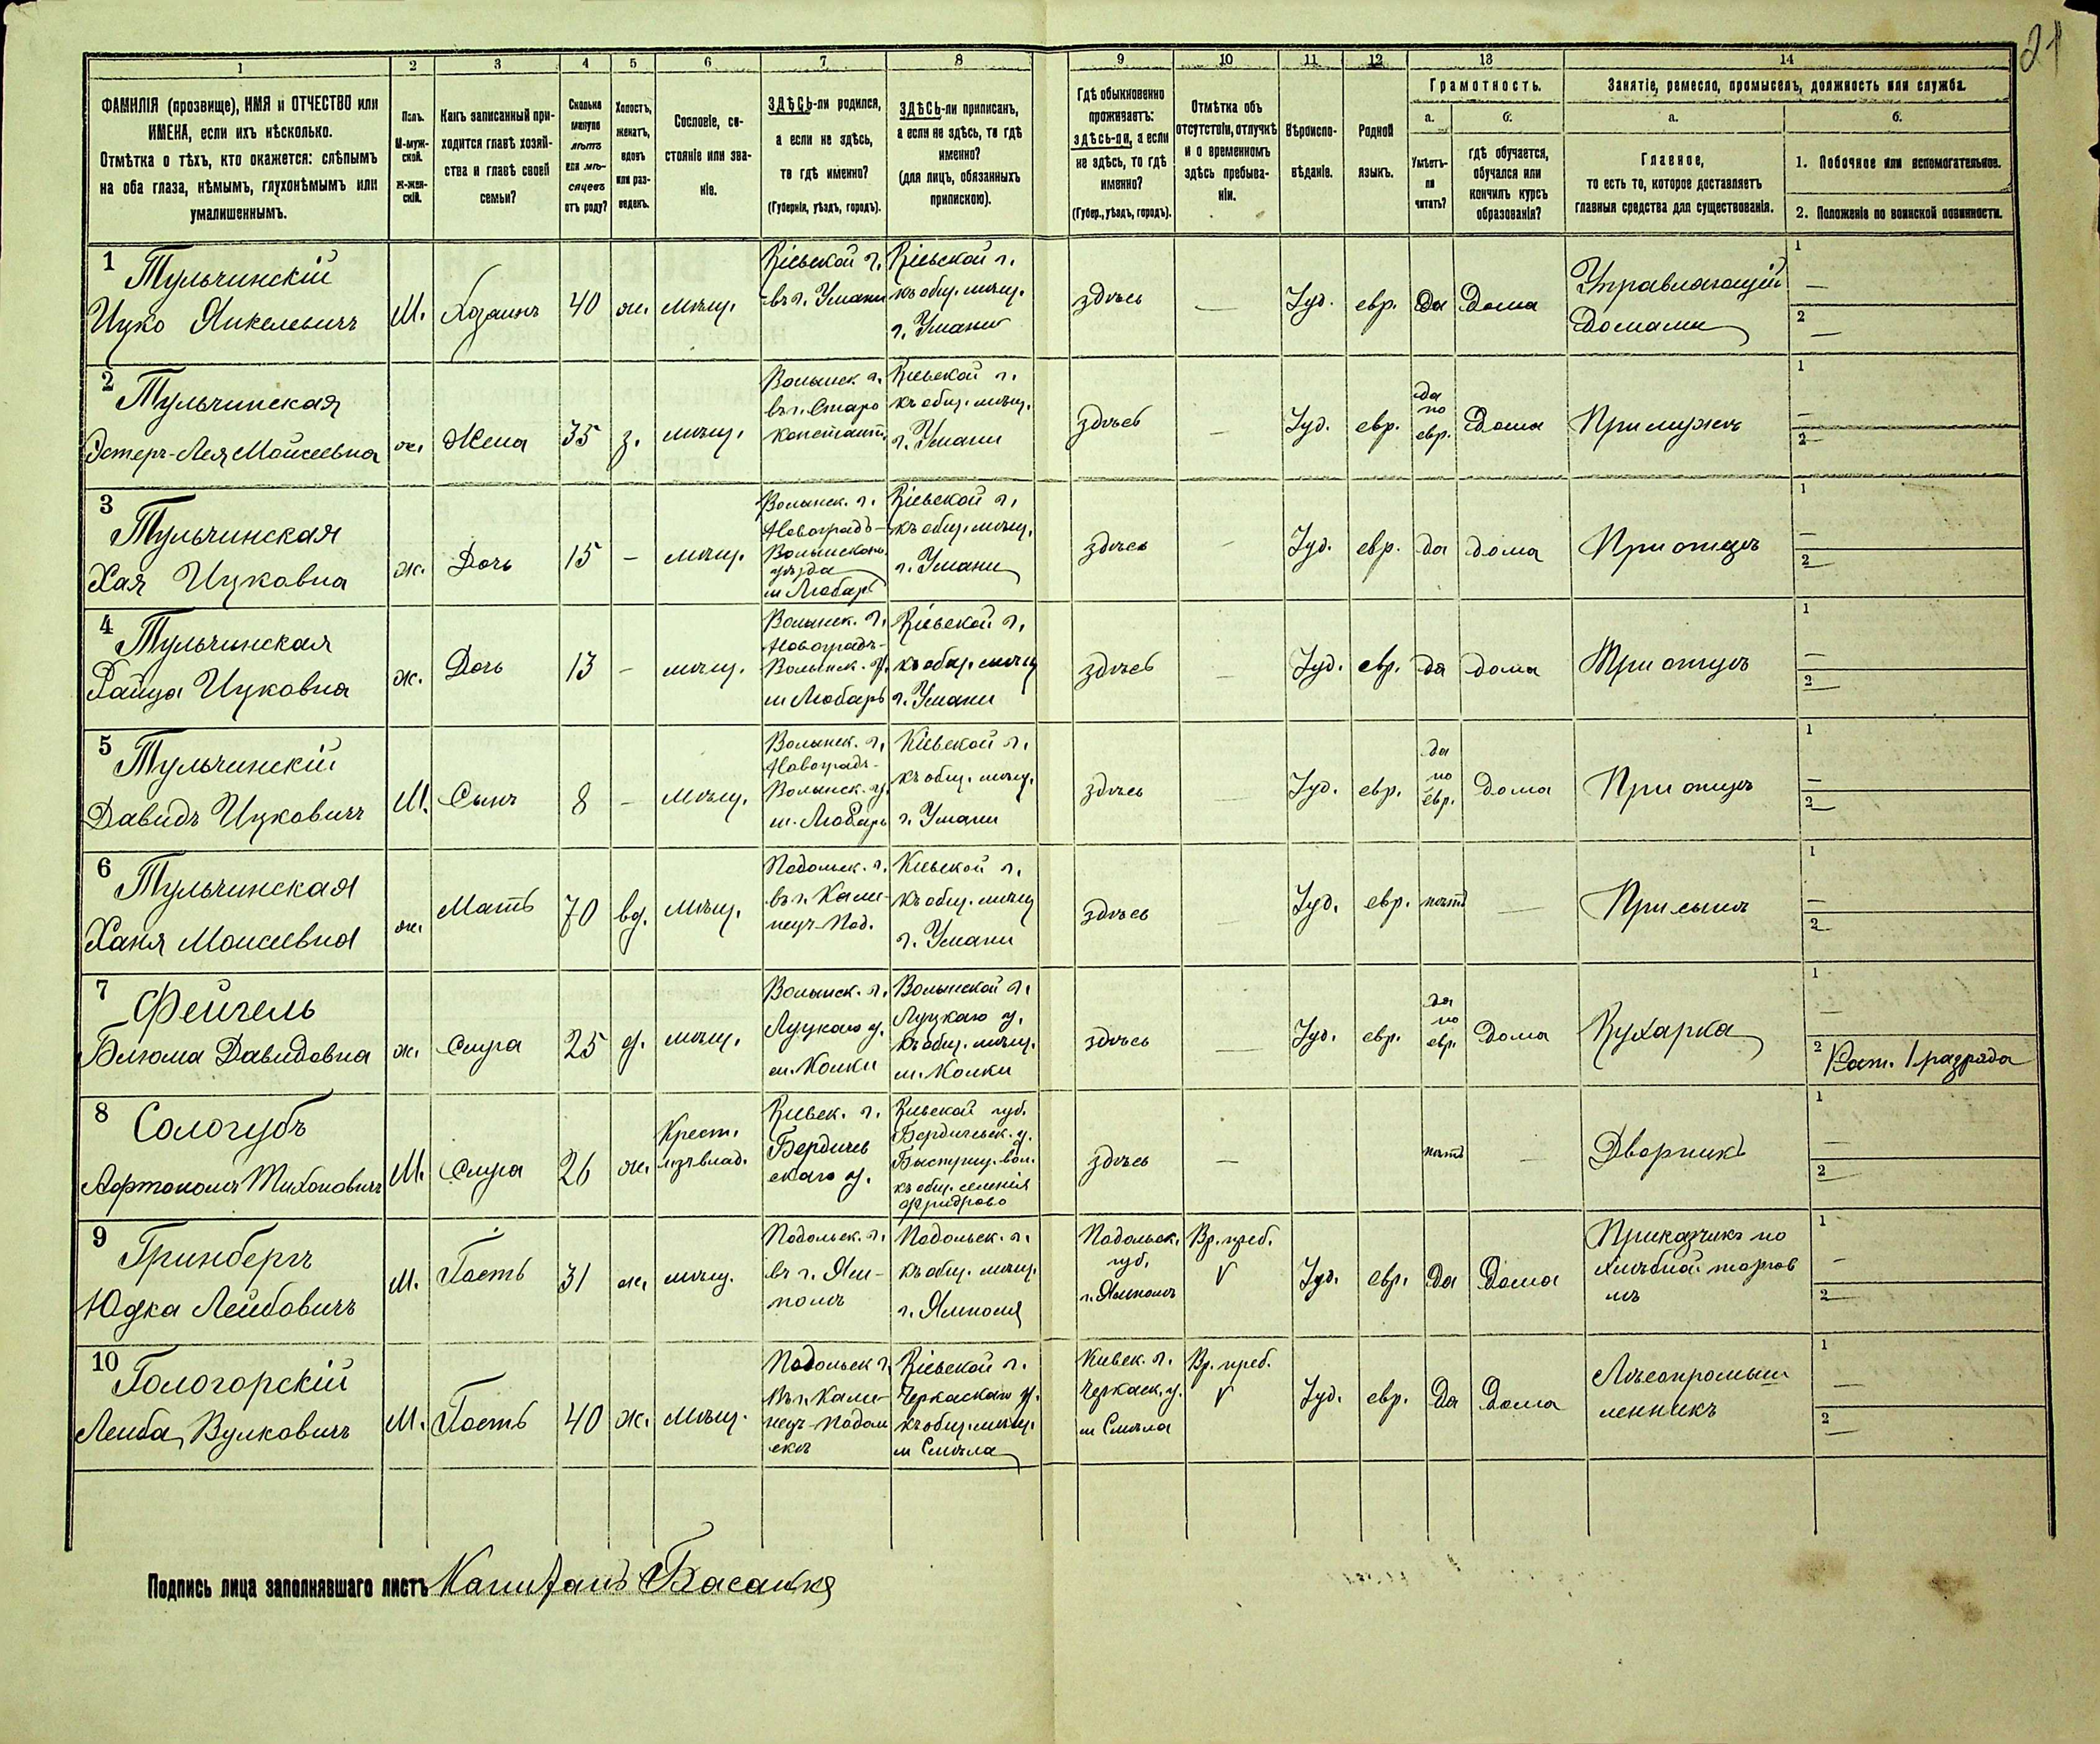 21
1 2 3 4 5 6 7 8 9 10 11 12 13 14
ФАМИЛІЯ (прозвище), ИМЯ и ОТЧЕСТВО или
ИМЕНА, если ихъ нѣсколько.
Отмѣтка о тѣхъ, кто окажется: слѣпымъ
на оба глаза, нѣмымъ, глухонѣмымъ или
умалишеннымъ.
Полъ.
М-муж-
ской.
Ж-жен-
скій.
Какъ записанный при-
ходится главѣ хозяй-
ства и главѣ своей
семьи?
Сколько
минуло
лѣтъ
или мѣ-
сяцевъ
отъ роду?
Холостъ,
женатъ,
вдовъ
или раз-
веденъ.
Сословіе, со-
стояніе или зва-
ніе.
ЗДѢСЬ-ли родился,
а если не здѣсь,
то гдѣ именно?
(Губернія, уѣздъ, городъ).
ЗДѢСЬ-ли приписанъ,
а если не здѣсь, то гдѣ
именно?
(для лицъ, обязанныхъ
припискою).
Гдѣ обыкновенно
проживаетъ:
здѣсь-ли, а если
не здѣсь, то гдѣ
именно?
(Губер., уѣздъ, городъ).
Отмѣтка объ
отсутствіи, отлучкѣ
и о временномъ
здѣсь пребыва-
ніи.
Вѣроиспо-
вѣданіе.
Родной
языкъ.
Грамотность.
а.
Умѣетъ-
ли
читать?
б.
гдѣ обучается,
обучался или
кончилъ курсъ
образованія?
Занятіе, ремесло, промыселъ, должность или служба.
а.
Главное,
то есть то, которое доставляетъ
главныя средства для существованія.
б.
1. Побочное или вспомогательное.
2. Положеніе по воинской повинности.
1
Тульчинскій
Ицко Янкелевичъ
М.
Хозяинъ
40
ж.
мѣщ.
Кіевской г.
въ г. Умани
Кіевской г.
къ общ. мѣщ.
г. Умани
здѣсь
—
Іуд.
евр.
Да
Дома
Управляющій
Домами
1 —
2 —
2
Тульчинская
Эстеръ-Лея Мойсеевна
ж.
Жена
35
з.
мѣщ.
Волынск. г.
въ г. Старо
константи.
Кіевской г.
къ общ. мѣщ.
г. Умани
здѣсь
—
Іуд.
евр.
да
по
евр.
Дома
При мужѣ
1 —
2 —
3
Тульчинская
Хая Ицковна
ж.
Дочь
15
—
мѣщ.
Волынск. г.
Новоградъ-
Волынскаго
уѣзда
м Любарѣ
Кіевской г.
къ общ. мѣщ.
г. Умани
здѣсь
—
Іуд.
евр.
да
дома
При отцѣ
1 —
2 —
4
Тульчинская
Файца Ицковна
ж.
Дочь
13
—
мѣщ.
Волынск. г.
Новоградъ-
Волынск. у.
м Любарѣ
Кіевской г.
къ общ. мѣщ
г. Умани
здѣсь
—
Іуд.
евр.
да
дома
При отцѣ
1 —
2 —
5
Тульчинскій
Давидъ Ицковичъ
М.
Сынъ
8
—
мѣщ.
Волынск. г.
Новоградъ-
Волынск. у.
м. Любарѣ
Кіевской г.
къ общ. мѣщ.
г. Умани
здѣсь
—
Іуд.
евр.
да
по
евр.
дома
При отцѣ
1 —
2 —
6
Тульчинская
Ханя Моисеевна
ж.
Мать
70
вд.
мѣщ.
Подольск. г.
въ г. Каме-
нецъ-Под.
Кіевской г.
къ общ. мѣщ
г. Умани
здѣсь
Іуд.
евр.
нѣтъ
—
При сынѣ
1 —
2 —
7
Фейгель
Блюма Давидовна
ж.
Слуга
25
д.
мѣщ.
Волынск. г.
Луцкаго у.
м. Колки
Волынской г.
Луцкаго у.
къ общ. мѣщ.
м. Колки
здѣсь
—
Іуд.
евр.
да
по
евр.
Дома
Кухарка
1 —
2
8
Сологубъ
Афтономъ Тихоновичъ
М.
Слуга
26
ж.
Крест.
изъ влад.
Кіевск. г.
Бердичев
скаго у.
Кіевской губ.
Бердичевск. у.
Быстриц. вол.
къ общ. селенія
здѣсь
—
нѣтъ
—
Дворникъ
1 —
2 —
9
Гринбергъ
Юдка Лейбовичъ
М.
Гость
31
ж.
мѣщ.
Подольск. г.
въ г. Ям-
полѣ
Подольск. г.
къ общ. мѣщ.
г. Ямполя
Подольск.
губ.
г. Ямполѣ
Вр. преб.
V
Іуд.
евр.
Да
Дома
Приказчикъ по
хлѣбной торгов
лѣ
1 —
2 —
10
Гологорскій
Лейба Вулковичъ
М.
Гость
40
ж.
мѣщ.
Подольск г.
въ г. Каме-
нецъ-Подол
скѣ
Кіевской г.
Черкаскаго у.
къ общ. мѣщ.
м Смѣла
Кіевск. г.
Черкаск. у.
м Смѣла
Вр. преб.
V
Іуд.
евр.
Да
Дома
Лѣсопромыш
ленникъ
1 —
2 —
Подпись лица заполнявшаго листъ Капитанъ